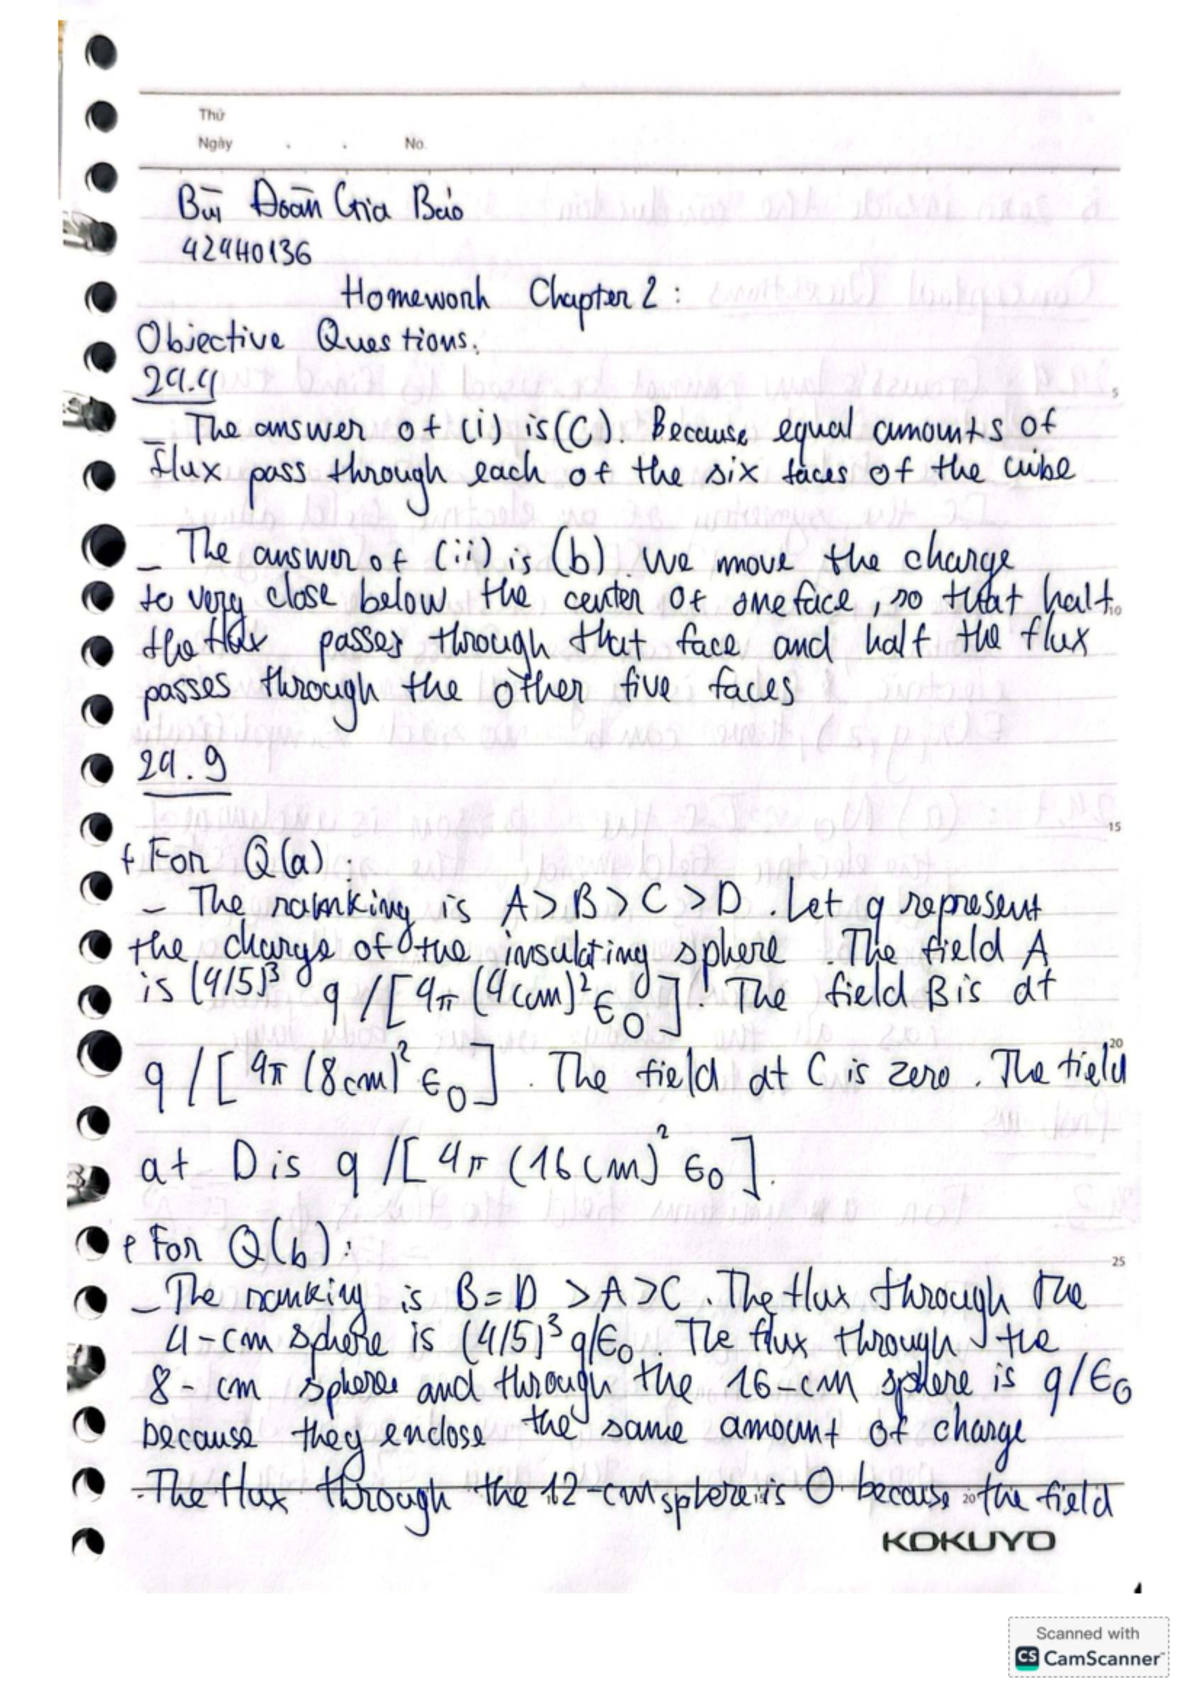 Thứ
Ngày . . No.
Bùi Đoàn Gia Bảo
424H0136
Homework Chapter 2 :
Objective Questions.
24.4
_ The answer of (i) is (C). Because equal amounts of
flux pass through each of the six faces of the cube
_ The answer of (ii) is (b). We move the charge
to very close below the center of one face, so that half
the flux passes through that face and half the flux
passes through the other five faces
24.9
+ For Q(a) :
- The ranking is A > B > C > D . Let q represent
the charge of the insulating sphere . The field A
is (4/5)³ q / [4π (4cm)² ϵ0] . The field B is at
q / [4π (8cm)² ϵ0] . The field at C is zero . The field
at D is q / [4π (16cm)² ϵ0] .
+ For Q(b) :
_ The ranking is B = D > A > C . The flux through the
4-cm sphere is (4/5)³ q/ϵ0 . The flux through the
8-cm sphere and through the 16-cm sphere is q/ϵ0
because they enclose the same amount of charge
. The flux through the 12-cm sphere is 0 because the field
5
10
15
20
25
KOKUYO
Scanned with
CS CamScanner